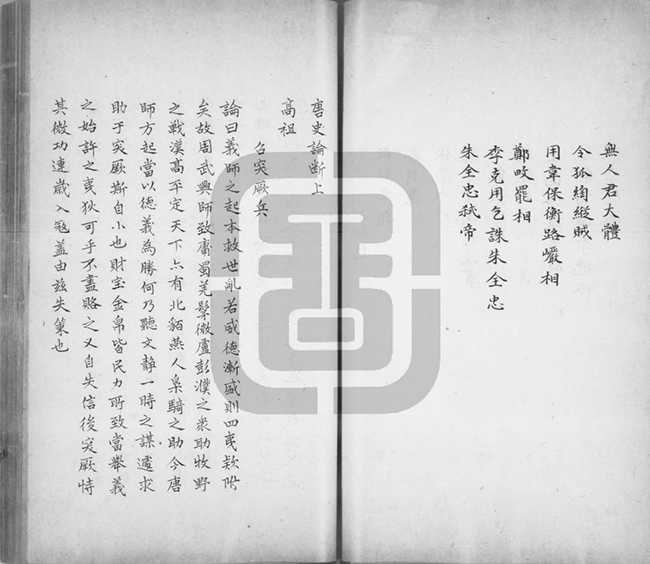 無人君大體
令狐綯縱賊
用韋保衡路巖相
鄭畋罷相
李克用乞誅朱全忠
朱全忠弒帝
唐史論斷上
高祖
召突厥兵
論曰義師之起本救世亂若威德漸盛則四夷欵附
矣故周武興師致庸蜀羌髳微盧彭濮之衆助牧野
之戰漢高平定天下亦有北貊燕人梟騎之助今唐
師方起當以德義為勝何乃聽文靜一時之謀遽求
助于突厥斯自小也財宝金帛皆民力所致當舉義
之始許之夷狄可乎不盡賂之又自失信後突厥恃
其微功連歲入冦蓋由兹失策也